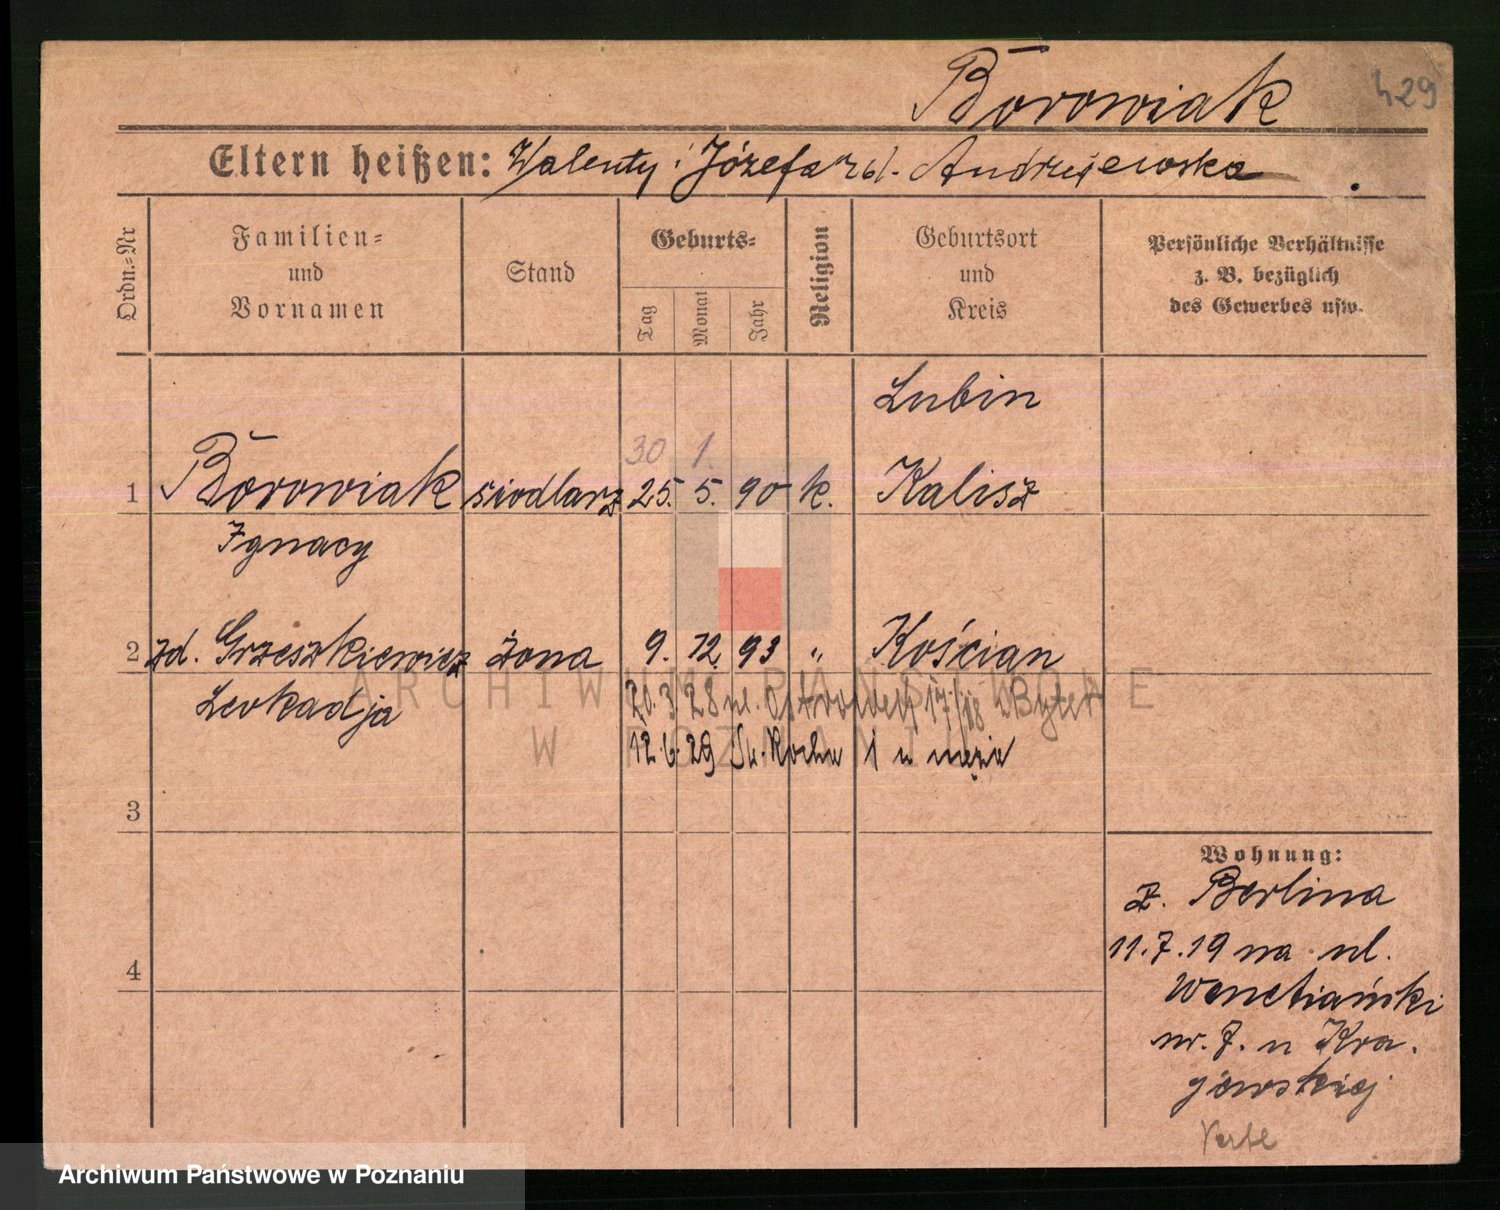 Borowiak
429
Eltern heißen: Walenty i Józefa zd. Andrzejewska
Ordn.=Nr
Familien=
und
Vornamen
Stand
Geburts=
Tag
Monat
Jahr
Religion
Geburtsort
und
Kreis
Persönliche Verhältnisse
z. B. bezüglich
des Gewerbes usw.
Lubin
30 1.
1 Borowiak siodlarz 25. 5. 90 k. Kalisz
Ignacy
2 zd. Grzeszkiewicz żona 9. 12. 93 " Kościan
Leokadja
20.3.28 ul. 17/18
12.6.29 Św. Rocha 1 u męża
3
4
Wohnung:
z. Berlina
11.7.19 na ul.
Wenetiański
nr. 7. u Kra.
jewskiej
ARCHIWUM PAŃSTWOWE
W POZNANIU
Archiwum Państwowe w Poznaniu